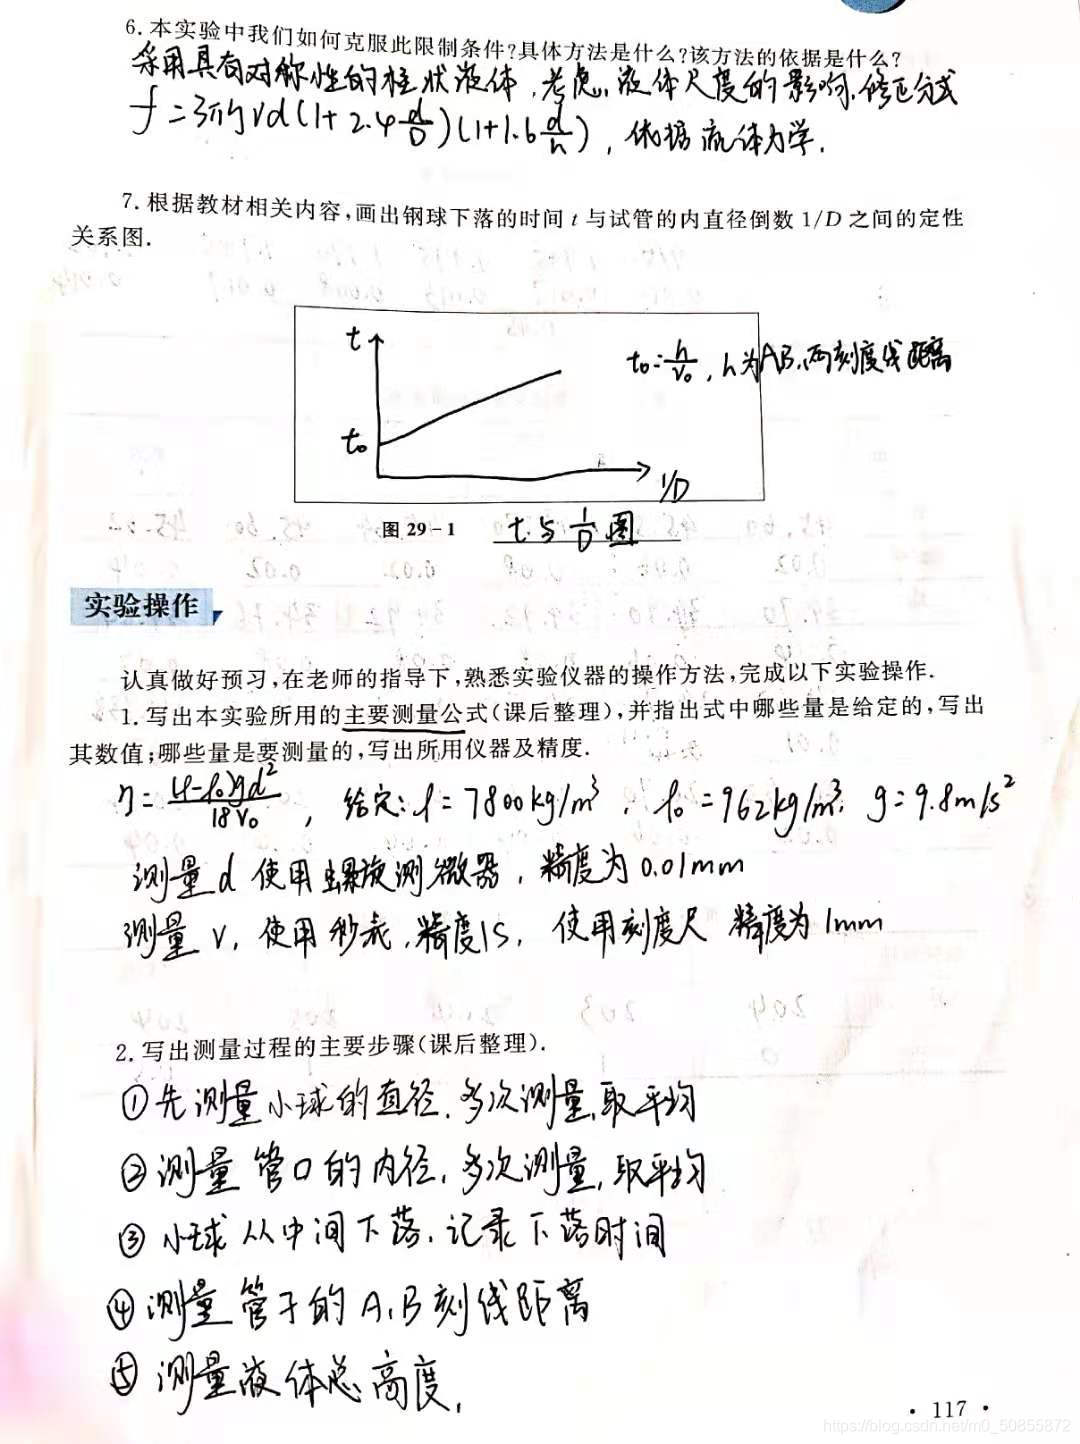 6. 本实验中我们如何克服此限制条件?具体方法是什么?该方法的依据是什么?
采用具有对称性的柱状液体,考虑,液体尺度的影响,修正公式
f=3πηvd(1+2.4 d/D)(1+1.6 d/h),依据流体力学.
7. 根据教材相关内容,画出钢球下落的时间 t 与试管的内直径倒数 1/D 之间的定性
关系图.
t
t₀=h/v₀,h为AB,两刻度线距离
t₀
1/D
图 29-1 t与1/D图
实验操作
认真做好预习,在老师的指导下,熟悉实验仪器的操作方法,完成以下实验操作.
1. 写出本实验所用的主要测量公式(课后整理),并指出式中哪些量是给定的,写出
其数值;哪些量是要测量的,写出所用仪器及精度.
η=(ρ-ρ₀)gd²/18v₀,给定:ρ=7800kg/m³,ρ₀=962kg/m³,g=9.8m/s²
测量d使用螺旋测微器,精度为0.01mm
测量v,使用秒表,精度1S,使用刻度尺 精度为1mm
2. 写出测量过程的主要步骤(课后整理).
①先测量小球的直径,多次测量,取平均
②测量管口的内径,多次测量,取平均
③小球从中间下落,记录下落时间
④测量管子的A,B刻线距离
⑤测量液体总高度,
· 117 ·
https://blog.csdn.net/m0_50855872